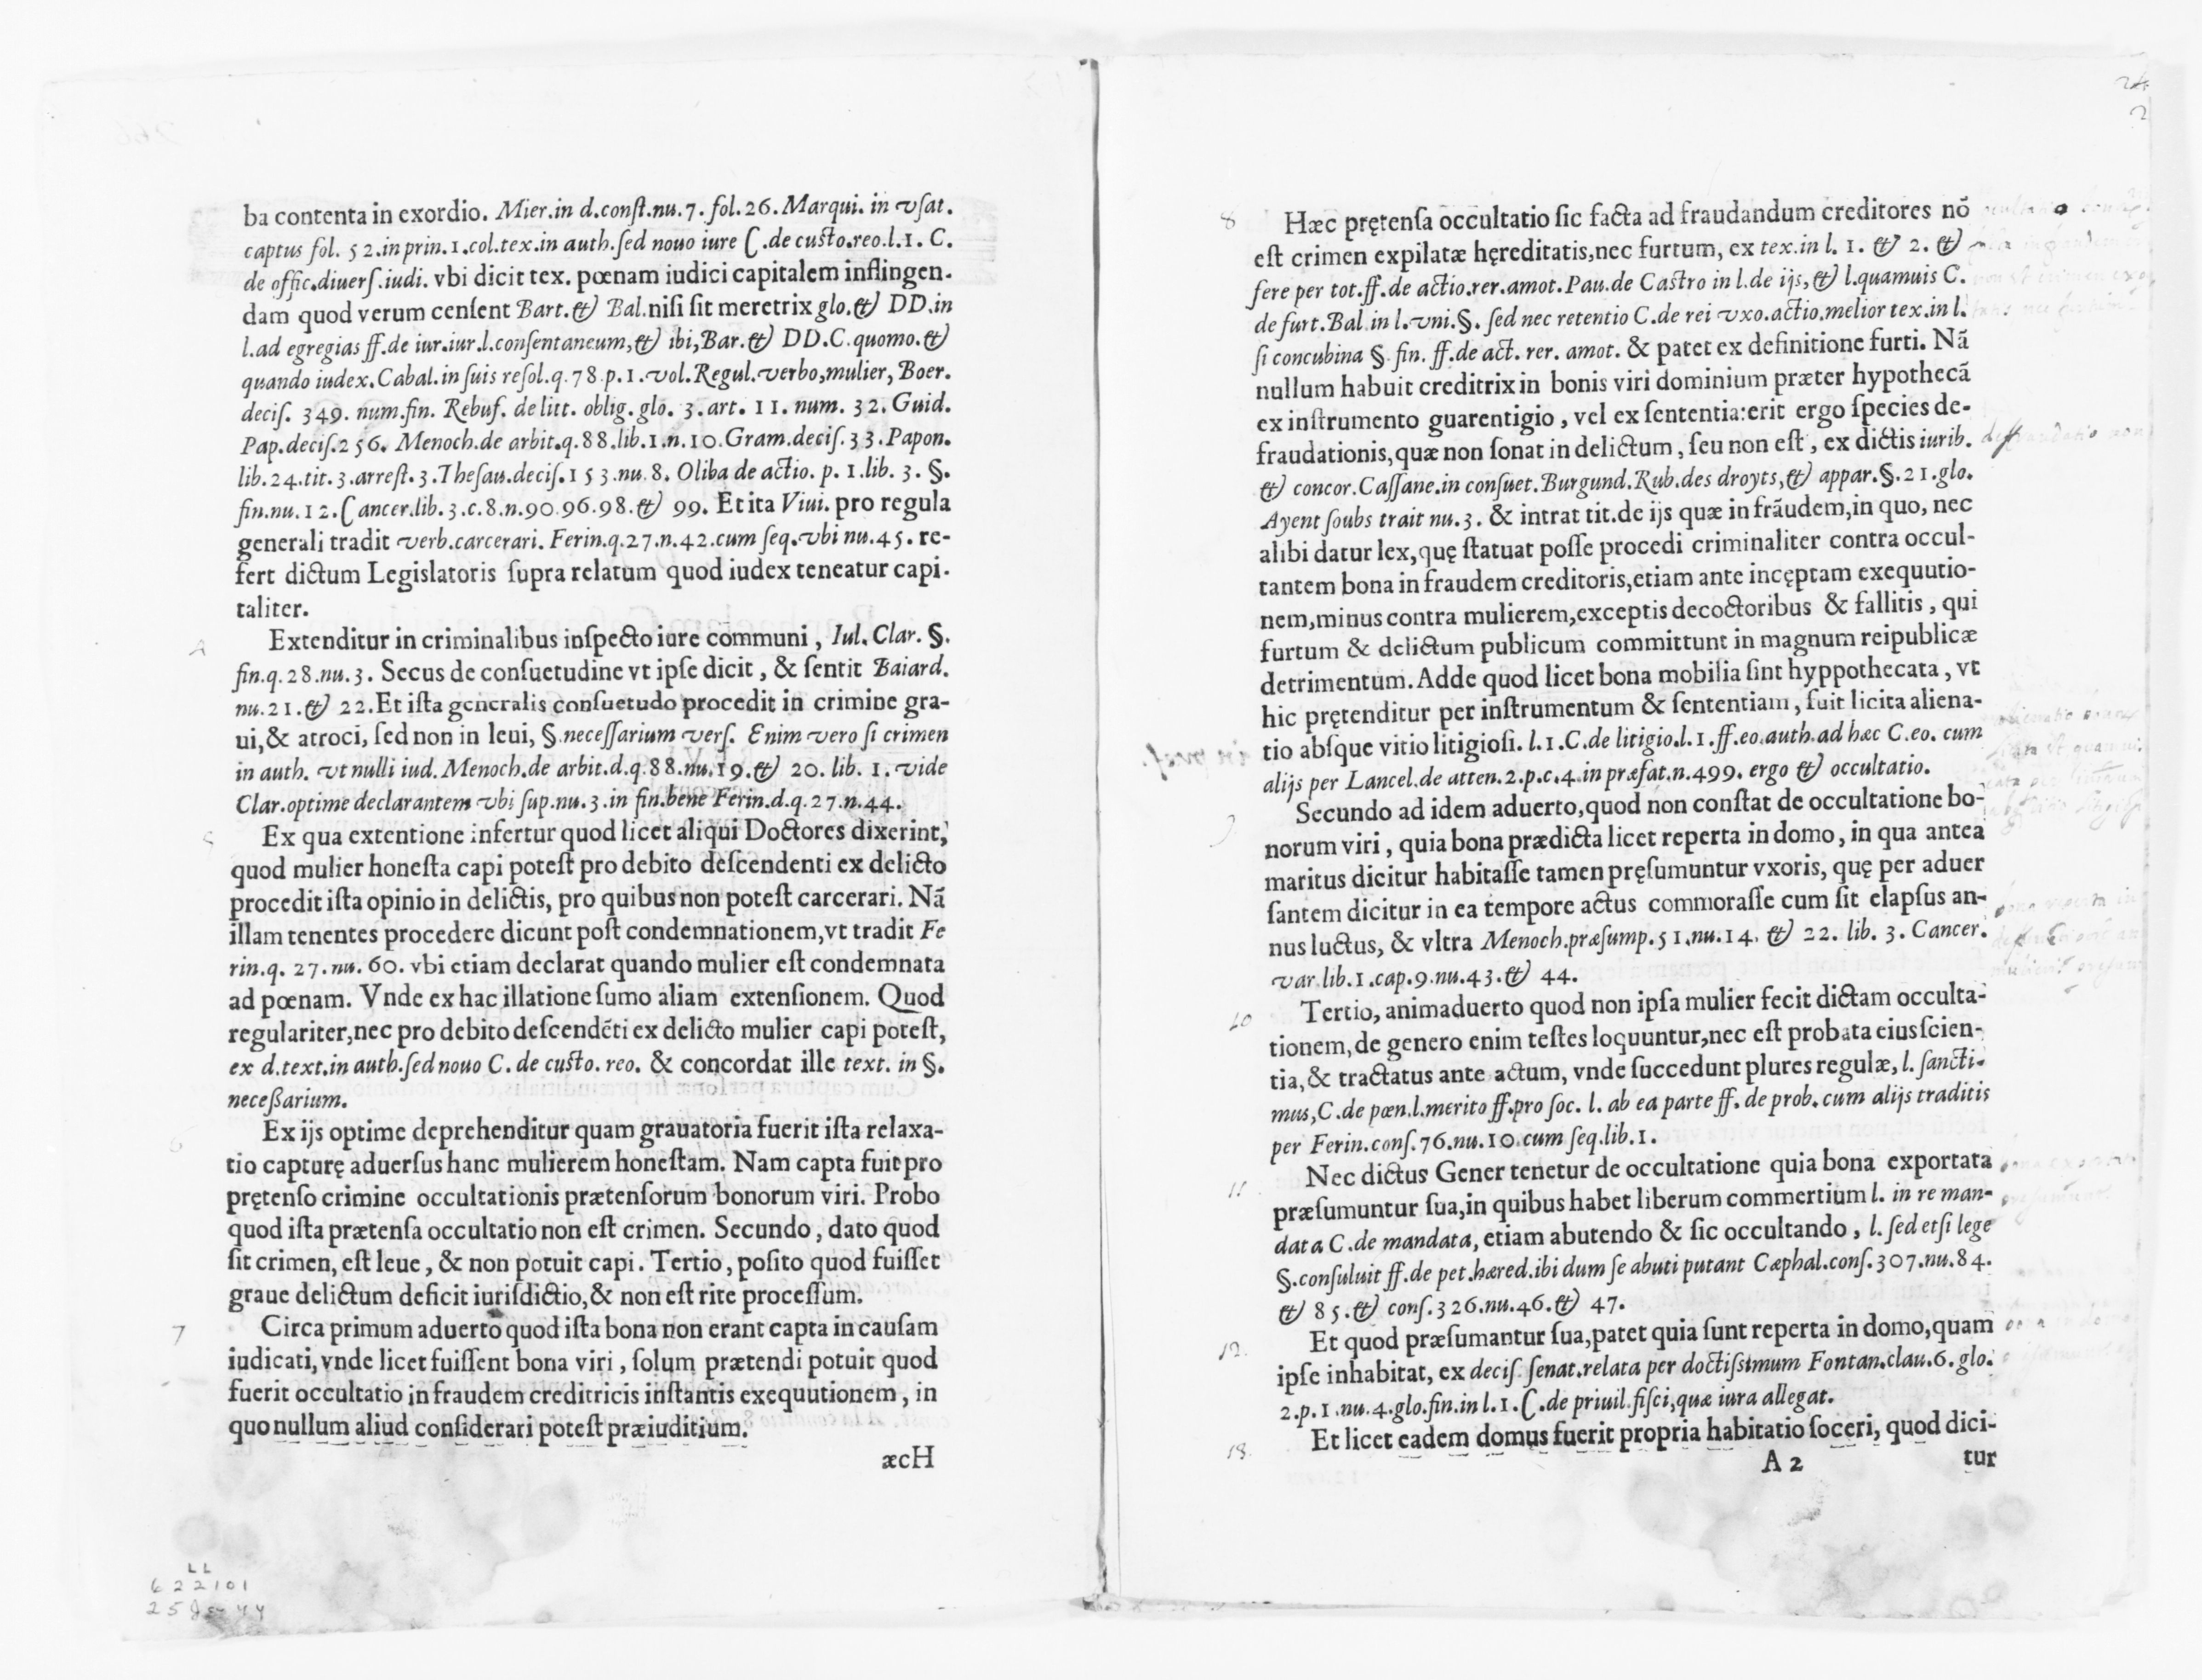 ba contenta in exordio. Mier.in d.const.nu.7. fol.26. Marqui. in vsat.
captus fol. 52.in prin.1.col.tex.in auth.sed nouo iure C.de custo.reo.l.1. C.
de offic.diuers.iudi. vbi dicit tex. pœnam iudici capitalem inflingen-
dam quod verum censent Bart.& Bal.nisi sit meretrix glo.& DD.in
l.ad egregias ff.de iur.iur.l.consentaneum,& ibi,Bar.& DD.C.quomo.&
quando iudex.Cabal.in suis resol.q.78.p.1.vol.Regul.verbo,mulier, Boer.
decis. 349. num.fin. Rebuf. de litt. oblig. glo. 3. art. 11. num. 32. Guid.
Pap.decis.256. Menoch.de arbit.q.88.lib.1.n.10.Gram.decis.33.Papon.
lib.24.tit.3.arrest.3.Thesau.decis.153.nu.8. Oliba de actio. p. 1.lib. 3. §.
fin.nu.12.Cancer.lib.3.c.8.n.90.96.98.& 99. Et ita Viui. pro regula
generali tradit verb.carcerari. Ferin.q.27.n.42.cum seq.vbi nu.45. re-
fert dictum Legislatoris supra relatum quod iudex teneatur capi-
taliter.
4 Extenditur in criminalibus inspecto iure communi, Iul. Clar. §.
fin.q.28.nu.3. Secus de consuetudine vt ipse dicit, & sentit Baiard.
nu.21.& 22.Et ista generalis consuetudo procedit in crimine gra-
ui,& atroci, sed non in leui, §.necessarium vers. Enim vero si crimen
in auth. vt nulli iud. Menoch.de arbit.d.q.88.nu.19.& 20. lib. 1. vide
Clar.optime declarantem vbi sup.nu.3.in fin.bene Ferin.d.q.27.n.44.
5 Ex qua extentione infertur quod licet aliqui Doctores dixerint,
quod mulier honesta capi potest pro debito descendenti ex delicto
procedit ista opinio in delictis, pro quibus non potest carcerari. Nã
illam tenentes procedere dicunt post condemnationem,vt tradit Fe
rin.q. 27. nu. 60. vbi etiam declarat quando mulier est condemnata
ad pœnam. Vnde ex hac illatione sumo aliam extensionem. Quod
regulariter,nec pro debito descendẽti ex delicto mulier capi potest,
ex d.text.in auth.sed nouo C. de custo. reo. & concordat ille text. in §.
neceßarium.
6 Ex ijs optime deprehenditur quam grauatoria fuerit ista relaxa-
tio capturę aduersus hanc mulierem honestam. Nam capta fuit pro
prętenso crimine occultationis prætensorum bonorum viri. Probo
quod ista prætensa occultatio non est crimen. Secundo, dato quod
sit crimen, est leue, & non potuit capi. Tertio, posito quod fuisset
graue delictum deficit iurisdictio,& non est rite processum.
7 Circa primum aduerto quod ista bona non erant capta in causam
iudicati,vnde licet fuissent bona viri, solum prætendi potuit quod
fuerit occultatio in fraudem creditricis instantis exequutionem, in
quo nullum aliud considerari potest præiuditium.
æcH
LL
622101
25
2
8 Hæc prętensa occultatio sic facta ad fraudandum creditores nõ
est crimen expilatæ hęreditatis,nec furtum, ex tex.in l. 1. & 2. &
fere per tot.ff.de actio.rer.amot.Pau.de Castro in l.de ijs,& l.quamuis C.
de furt.Bal.in l.vni.§. sed nec retentio C.de rei vxo.actio.melior tex.in l.
si concubina §. fin. ff.de act. rer. amot. & patet ex definitione furti. Nã
nullum habuit creditrix in bonis viri dominium præter hypothecã
ex instrumento guarentigio, vel ex sententia:erit ergo species de-
fraudationis,quæ non sonat in delictum, seu non est, ex dictis iurib.
& concor.Cassane.in consuet.Burgund.Rub.des droyts,& appar.§.21.glo.
Ayent soubs trait nu.3. & intrat tit.de ijs quæ in frãudem,in quo, nec
alibi datur lex,quę statuat posse procedi criminaliter contra occul-
tantem bona in fraudem creditoris,etiam ante incęptam exequutio-
nem,minus contra mulierem,exceptis decoctoribus & fallitis, qui
furtum & delictum publicum committunt in magnum reipublicæ
detrimentum.Adde quod licet bona mobilia sint hyppothecata, vt
hic prętenditur per instrumentum & sententiam, fuit licita aliena-
tio absque vitio litigiosi. l.1.C.de litigio.l.1.ff.eo.auth.ad hæc C.eo. cum
alijs per Lancel.de atten.2.p.c.4.in præfat.n.499. ergo & occultatio.
9 Secundo ad idem aduerto,quod non constat de occultatione bo-
norum viri, quia bona prædicta licet reperta in domo, in qua antea
maritus dicitur habitasse tamen pręsumuntur vxoris, quę per aduer
santem dicitur in ea tempore actus commorasse cum sit elapsus an-
nus luctus, & vltra Menoch.præsump.51.nu.14. & 22. lib. 3. Cancer.
var.lib.1.cap.9.nu.43.& 44.
10 Tertio, animaduerto quod non ipsa mulier fecit dictam occulta-
tionem,de genero enim testes loquuntur,nec est probata eius scien-
tia,& tractatus ante actum, vnde succedunt plures regulæ, l. sancti-
mus,C.de pœn.l.merito ff.pro soc. l. ab ea parte ff. de prob.cum alijs traditis
per Ferin.cons.76.nu.10.cum seq.lib.1.
11 Nec dictus Gener tenetur de occultatione quia bona exportata
præsumuntur sua,in quibus habet liberum commertium l. in re man-
data C.de mandata, etiam abutendo & sic occultando, l. sed etsi lege
§.consuluit ff.de pet.hæred.ibi dum se abuti putant Cæphal.cons.307.nu.84.
& 85.& cons.326.nu.46.& 47.
12. Et quod præsumantur sua,patet quia sunt reperta in domo,quam
ipse inhabitat, ex decis. senat.relata per doctissimum Fontan.clau.6.glo.
2.p.1.nu.4.glo.fin.in l.1.C.de priuil.fisci,quæ iura allegat.
13. Et licet eadem domus fuerit propria habitatio soceri, quod dici-
A 2 tur